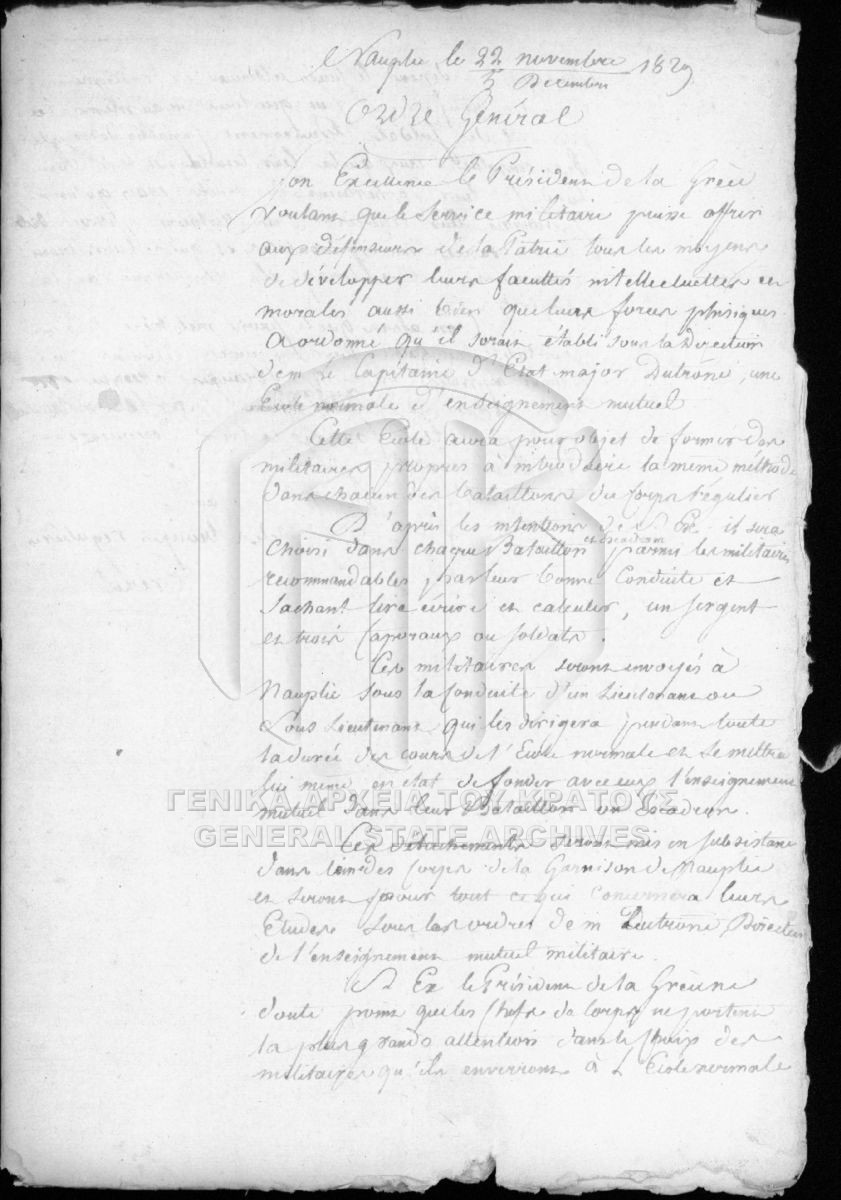 Nauplie le 22 novembre 1829
5 Decembre
Ordre Général
Son Excellence le Président de la Grèce
voulant que le service militaire puisse offrir
aux défenseurs de la Patrie tous les moyens
de développer leurs facultés intellectuelles et
morales aussi bien que leurs forces phisiques
a ordonné qu'il serait établi sous la Direction
de m le Capitaine d'Etat major Dutrône, une
Ecole normale d'enseignement mutuel
Cette Ecole aura pour objet de former des
militaires propres à introduire la même méthode
dans chacun des bataillons du Corps régulier
D'après les intentions de S Ex. il sera
choisi dans chaque Bataillon et escadron parmi les militaires
recommandables par leur bonne Conduite et
sachant lire écrire et calculer, un sergent
et trois Caporaux ou soldats.
Ces militaires seront envoyés à
Nauplie sous la Conduite d'un Lieutenant ou
Sous Lieutenant qui les dirigera pendant toute
la durée des cours de l'Ecole normale et se mettra
lui même en état de fonder avec eux l'enseignement
mutuel dans leur Bataillon ou Escadron.
ΓΕΝΙΚΑ ΑΡΧΕΙΑ ΤΟΥ ΚΡΑΤΟΥΣ
GENERAL STATE ARCHIVES
Ces détachements seront mis en subsistance
dans l'un des Corps de la Garnison de Nauplie
et seront pour tout ce qui concernera leurs
Etudes sous les ordres de m Dutrône, Directeur
de l'enseignement mutuel militaire.
S Ex le Président de la Grèce ne
doute point que les Chefs de Corps ne portent
la plus grande attention dans le choix des
militaires qu'ils enverront à L'Ecole normale